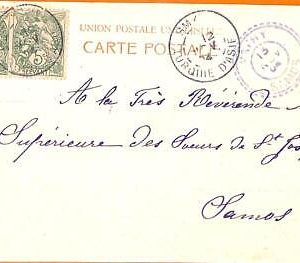 UNION POSTALE UN
CARTE POSTALE
TURQUIE D'ASIE
A la Très Révérende
Supérieure des Soeurs de St Jos
Samos